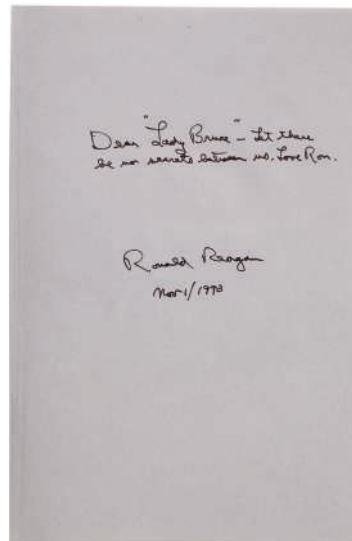 Dear "Lady Bruce" – Let there
be no secrets between us. Love Ron.
Ronald Reagan
Nov 1/1990